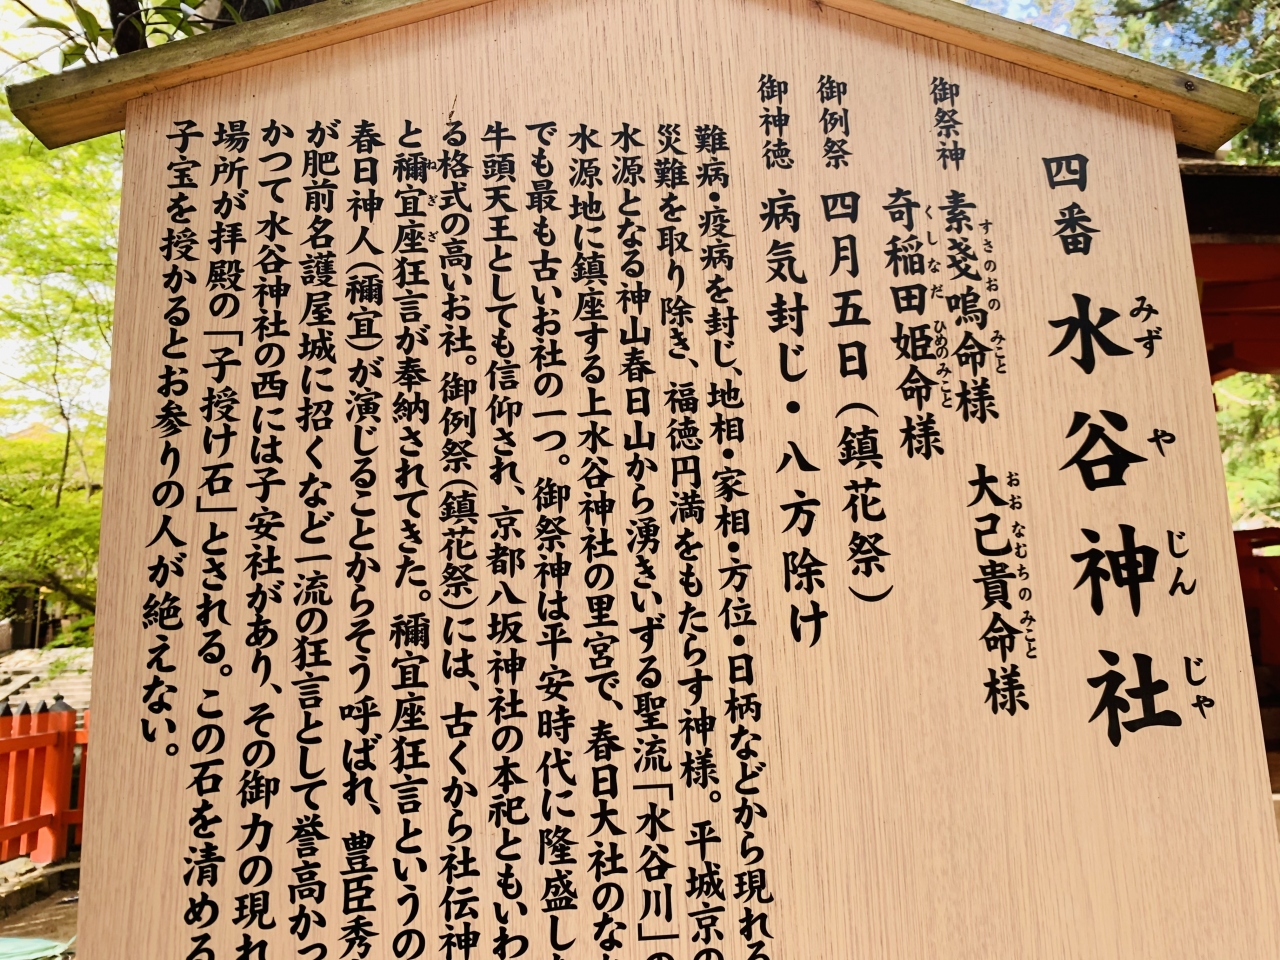 四番 水谷神社
みずやじんじゃ
御祭神 素戔嗚命様 大己貴命様
すさのおのみこと おおなむちのみこと
奇稲田姫命様
くしなだひめのみこと
御例祭 四月五日(鎮花祭)
御神徳 病気封じ・八方除け
難病・疫病を封じ、地相・家相・方位・日柄などから現れる
災難を取り除き、福徳円満をもたらす神様。平城京の
水源となる神山春日山から湧きいずる聖流「水谷川」の
水源地に鎮座する上水谷神社の里宮で、春日大社のなか
でも最も古いお社の一つ。御祭神は平安時代に隆盛した
牛頭天王としても信仰され、京都八坂神社の本祀ともいわ
る格式の高いお社。御例祭(鎮花祭)には、古くから社伝神
と禰宜座狂言が奉納されてきた。禰宜座狂言というの
ねぎざ
春日神人(禰宜)が演じることからそう呼ばれ、豊臣秀
が肥前名護屋城に招くなど一流の狂言として誉高かっ
かつて水谷神社の西には子安社があり、その御力の現れ
場所が拝殿の「子授け石」とされる。この石を清める
子宝を授かるとお参りの人が絶えない。